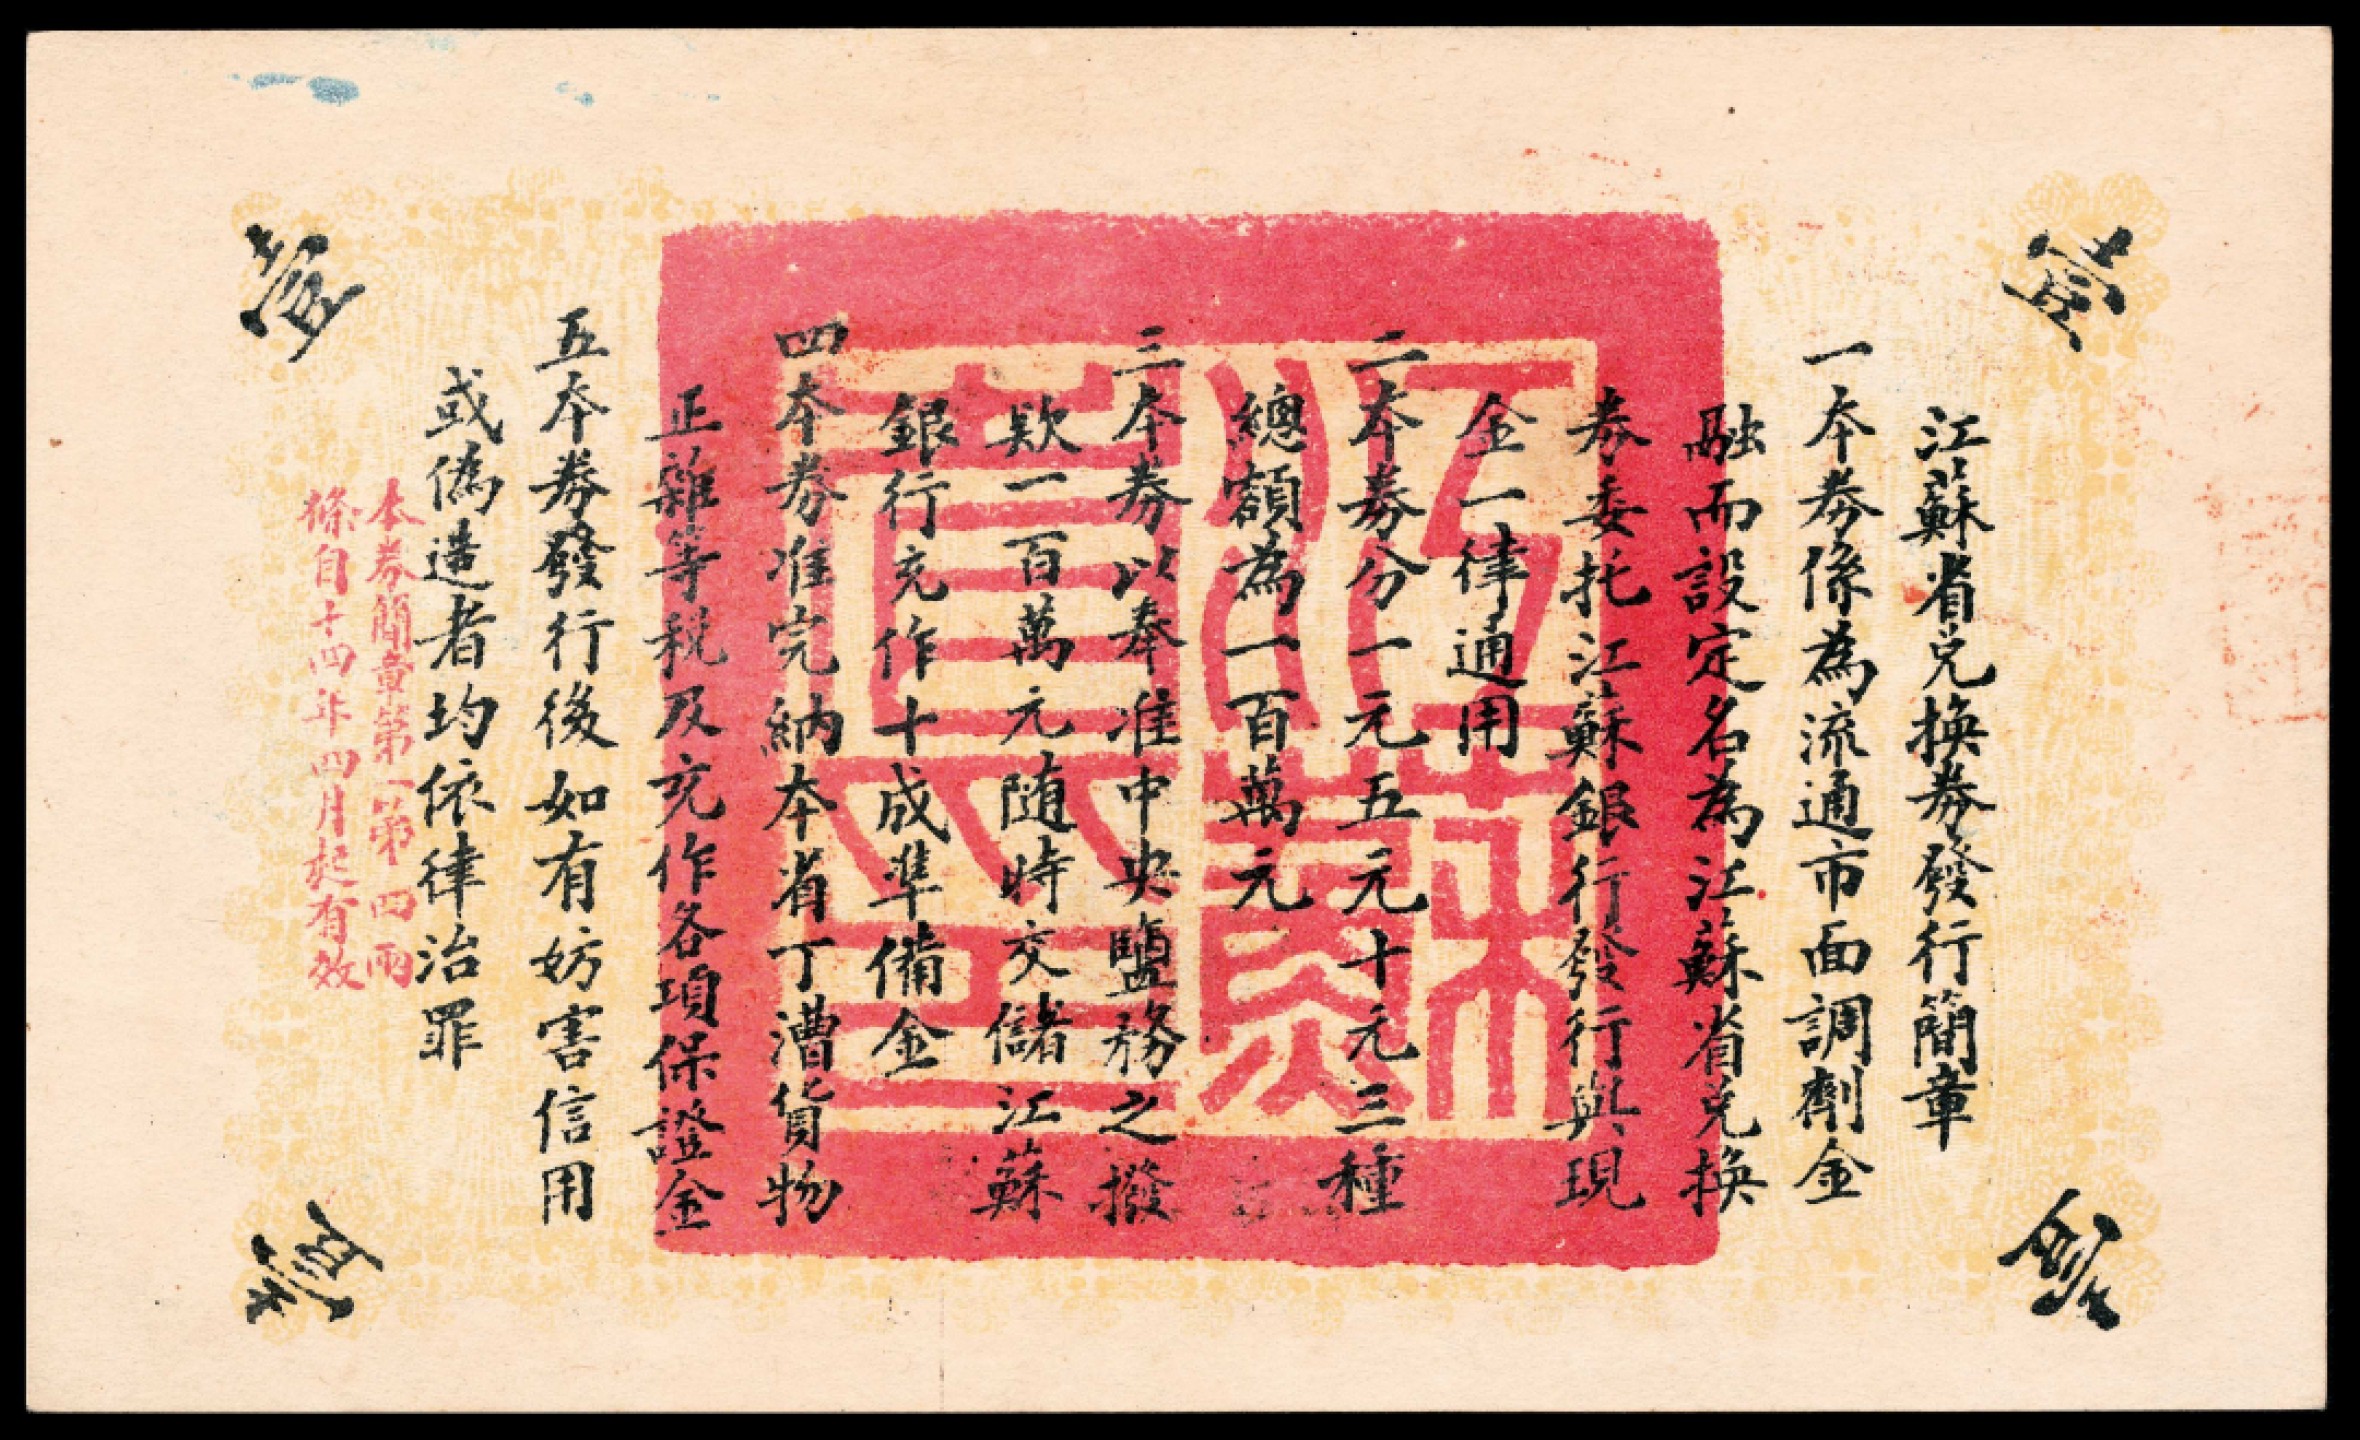 江蘇省兌換券發行簡章
一本券係為流通市面調劑金
融而設定名為江蘇省兌換
券委托江蘇銀行發行與現
金一律通用
二本券分一元五元十元三種
總額為一百萬元
三本券以奉准中央鹽務之撥
欵一百萬元随時交儲江蘇
銀行充作十成準備金
四本券准完納本省丁漕貨物
正雜等税及充作各項保證金
五本券發行後如有妨害信用
或偽造者均依律治罪
本券簡章第一第四兩
條自十四年四月起有效
壹
壹
壹
壹
江蘇
省印